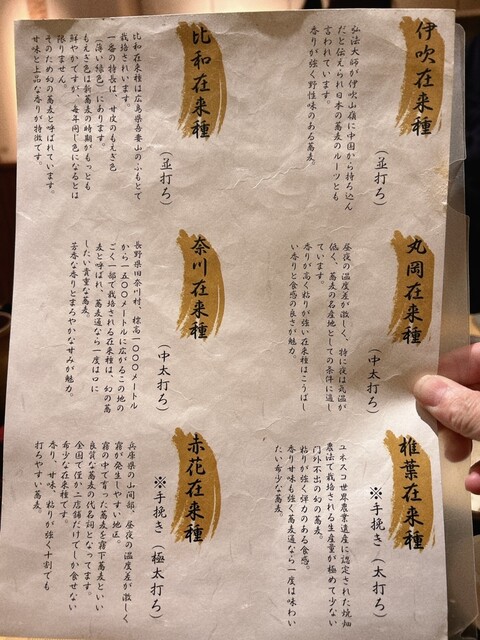 伊吹在来種
（並打ち）
弘法大師が伊吹山嶺に中国から持ち込ん
だと伝えられ日本の蕎麦のルーツとも
言われています。
香りが強く野性味のある蕎麦。
比和在来種
（並打ち）
比和在来種は広島県吾妻山のふもとで
栽培されています。
一番の特長は、甘皮のもえぎ色
（薄い緑色）にあります。
もえぎ色は新蕎麦の時期がもっとも
鮮やかですが、毎年同じ色になるとは
限りません。
そのため幻の蕎麦と呼ばれています。
甘味と上品な香りが特徴です。
丸岡在来種
（中太打ち）
昼夜の温度差が激しく、特に夜は気温が
低く、蕎麦の名産地としての条件に適し
ています。
香りが高く粘りが強い在来種はこうばし
い香りと食感の良さが魅力。
奈川在来種
（中太打ち）
長野県旧奈川村、標高１０００メートル
から１５００メートルに広がるこの地の
ごく一部で栽培される在来種は、幻の蕎
麦と呼ばれ、蕎麦通なら一度は口に
したい貴重な蕎麦。
芳香な香りとまろやかな甘みが魅力。
椎葉在来種
※手挽き（太打ち）
ユネスコ世界農業遺産に認定された焼畑
農法で栽培される生産量が極めて少ない
門外不出の幻の蕎麦。
粘りが強く弾力のある食感。
香り甘味も強く蕎麦通なら一度は味わい
たい希少な蕎麦。
赤花在来種
※手挽き（極太打ち）
兵庫県の山間部、昼夜の温度差が激しく
霧が発生しやすい地区。
霧の中で育った蕎麦を霧下蕎麦といい
良質な蕎麦の代名詞となってます。
全国で僅か二店舗だけでしか食せない
希少な在来種です。
香り、甘味、粘りが強く十割でも
打ちやすい蕎麦。